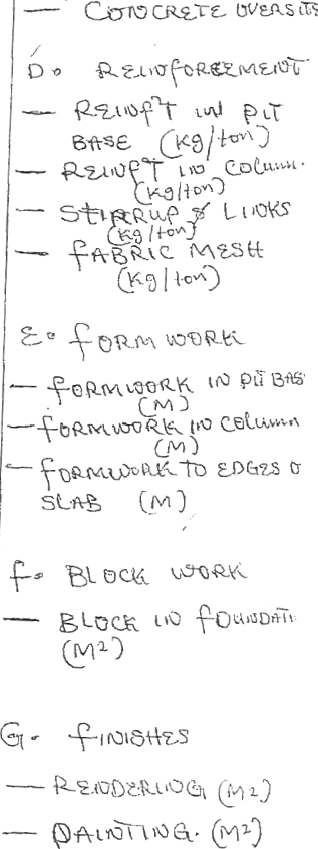 — CONCRETE OVERSITE
D. REINFORCEMENT
— REINF'T IN PIT
BASE (Kg/ton)
— REINF'T IN COLUMN.
(Kg/ton)
— STIRRUP & LINKS
(Kg/ton)
— FABRIC MESH
(Kg/ton)
E. FORM WORK
— FORMWORK IN PIT BAS
(M)
— FORMWORK IN COLUMN
(M)
— FORMWORK TO EDGES O
SLAB (M)
F. BLOCK WORK
— BLOCK IN FOUNDATI
(M2)
G. FINISHES
— RENDERING (M2)
— PAINTING. (M2)